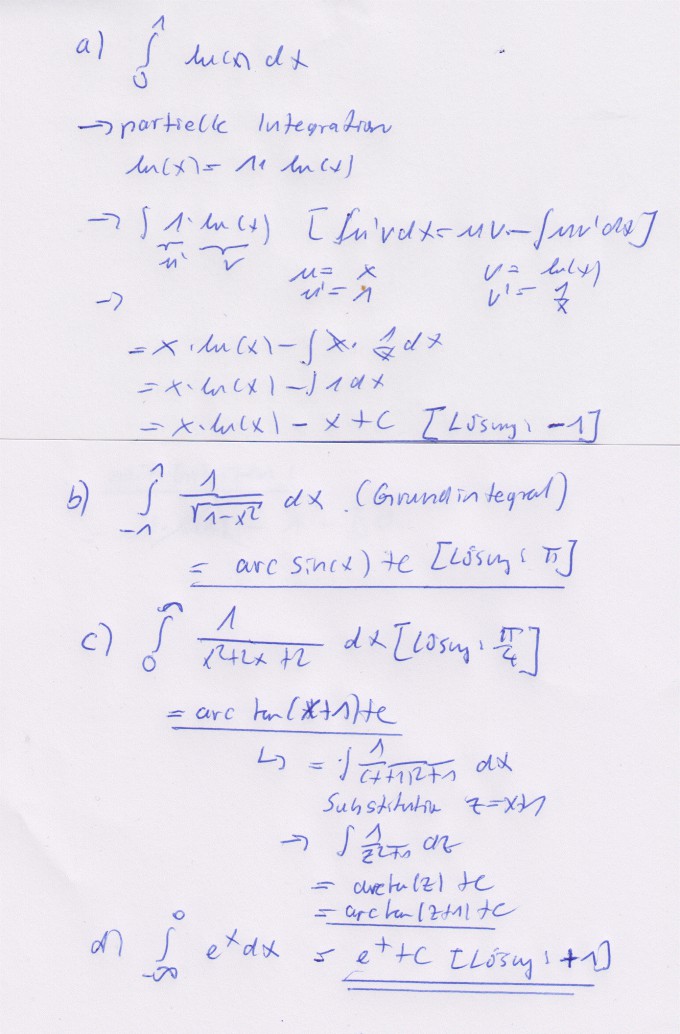 a) ∫₀¹ ln(x) dx
→ partielle Integration
ln(x) = 1· ln(x)
→ ∫ 1 · ln(x) [∫u'v dx = uv - ∫uv' dx]
u' v u = x v = ln(x)
→ u' = 1 v' = 1/x
= x · ln(x) - ∫ x · 1/x dx
= x · ln(x) - ∫ 1 dx
= x · ln(x) - x + C [Lösung: -1]
b) ∫₋₁¹ 1/√(1-x²) dx (Grundintegral)
= arc sin(x) + c [Lösung: π]
c) ∫₀^∞ 1/(x²+2x+2) dx [Lösung: π/4]
= arc tan(x+1) + c
↳ = ∫ 1/((x+1)²+1) dx
Substitution z = x+1
→ ∫ 1/(z²+1) dz
= arctan(z) + c
= arctan(z+1) + C
d) ∫₋∞⁰ eˣ dx = eˣ + C [Lösung: +1]